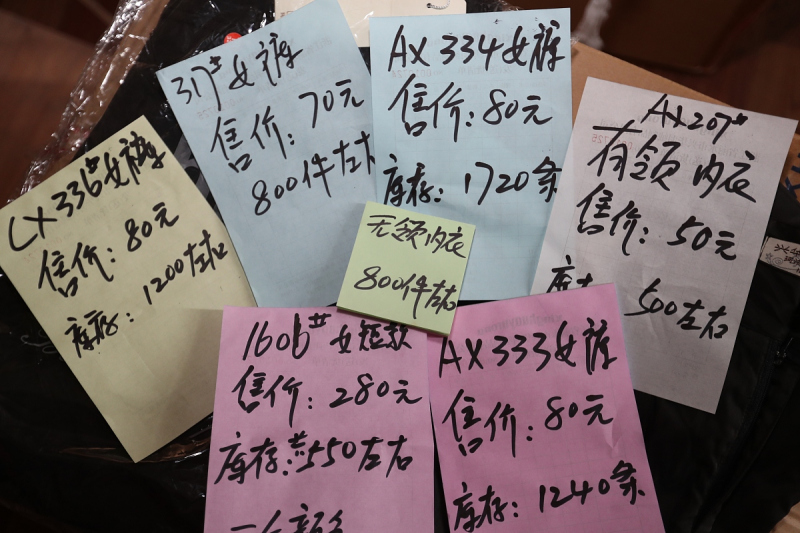 317#女裤
售价:70元
800件左右
AX 334女裤
售价:80元
库存:1720条
AX207#
有领内衣
售价:50元
500左右
CX 336#女裤
售价:80元
库存:1200左右
无领内衣
800件左右
1606#女短款
售价:280元
库存:550左右
AX 333女裤
售价:80元
库存:1240条